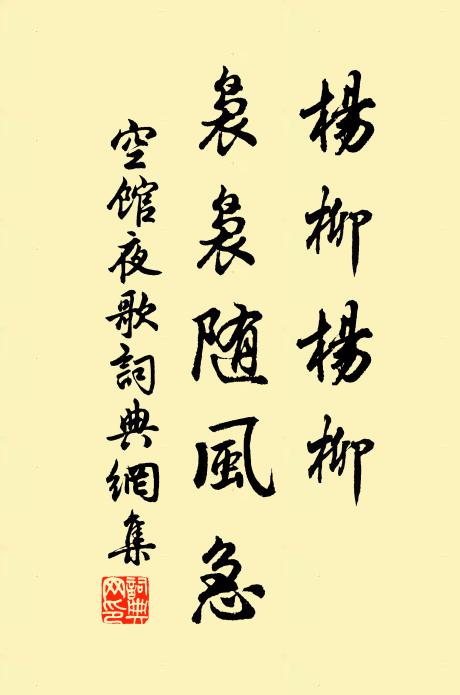 楊柳楊柳
裊裊随風急
空館夜歌詞典網集
詞典網印